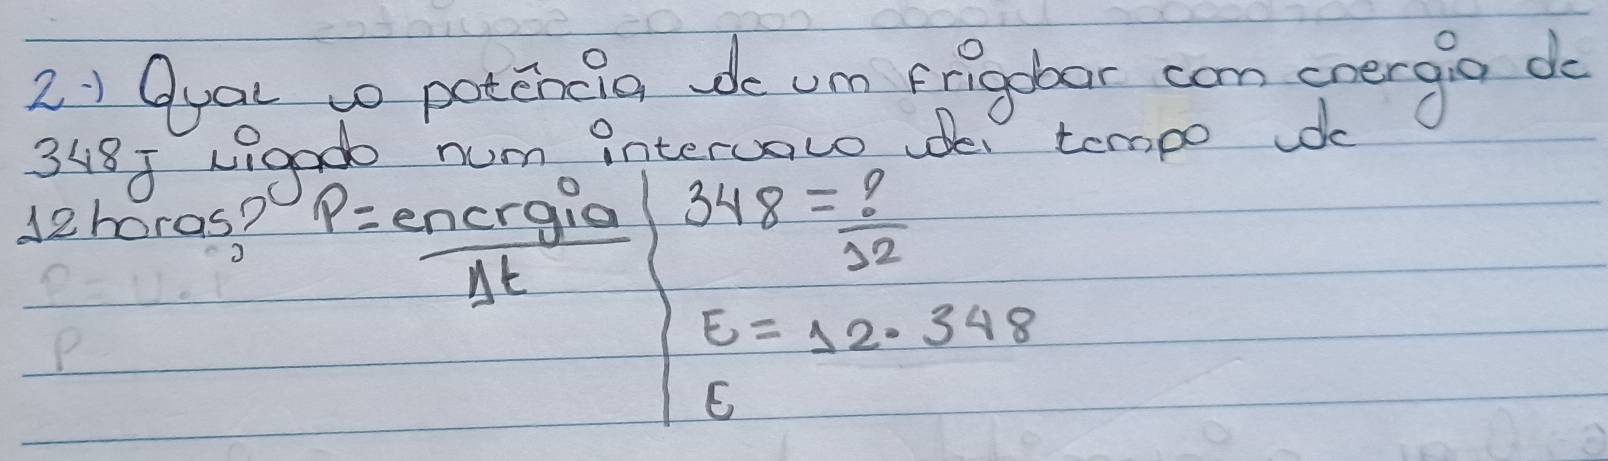 2-) Qual a potência de um frigobar com energia de
348J ligado num intervalo de tempo de
12 horas?
P = energia
Δt
348 = ?
12
E = 12. 348
E
P = U.I
P